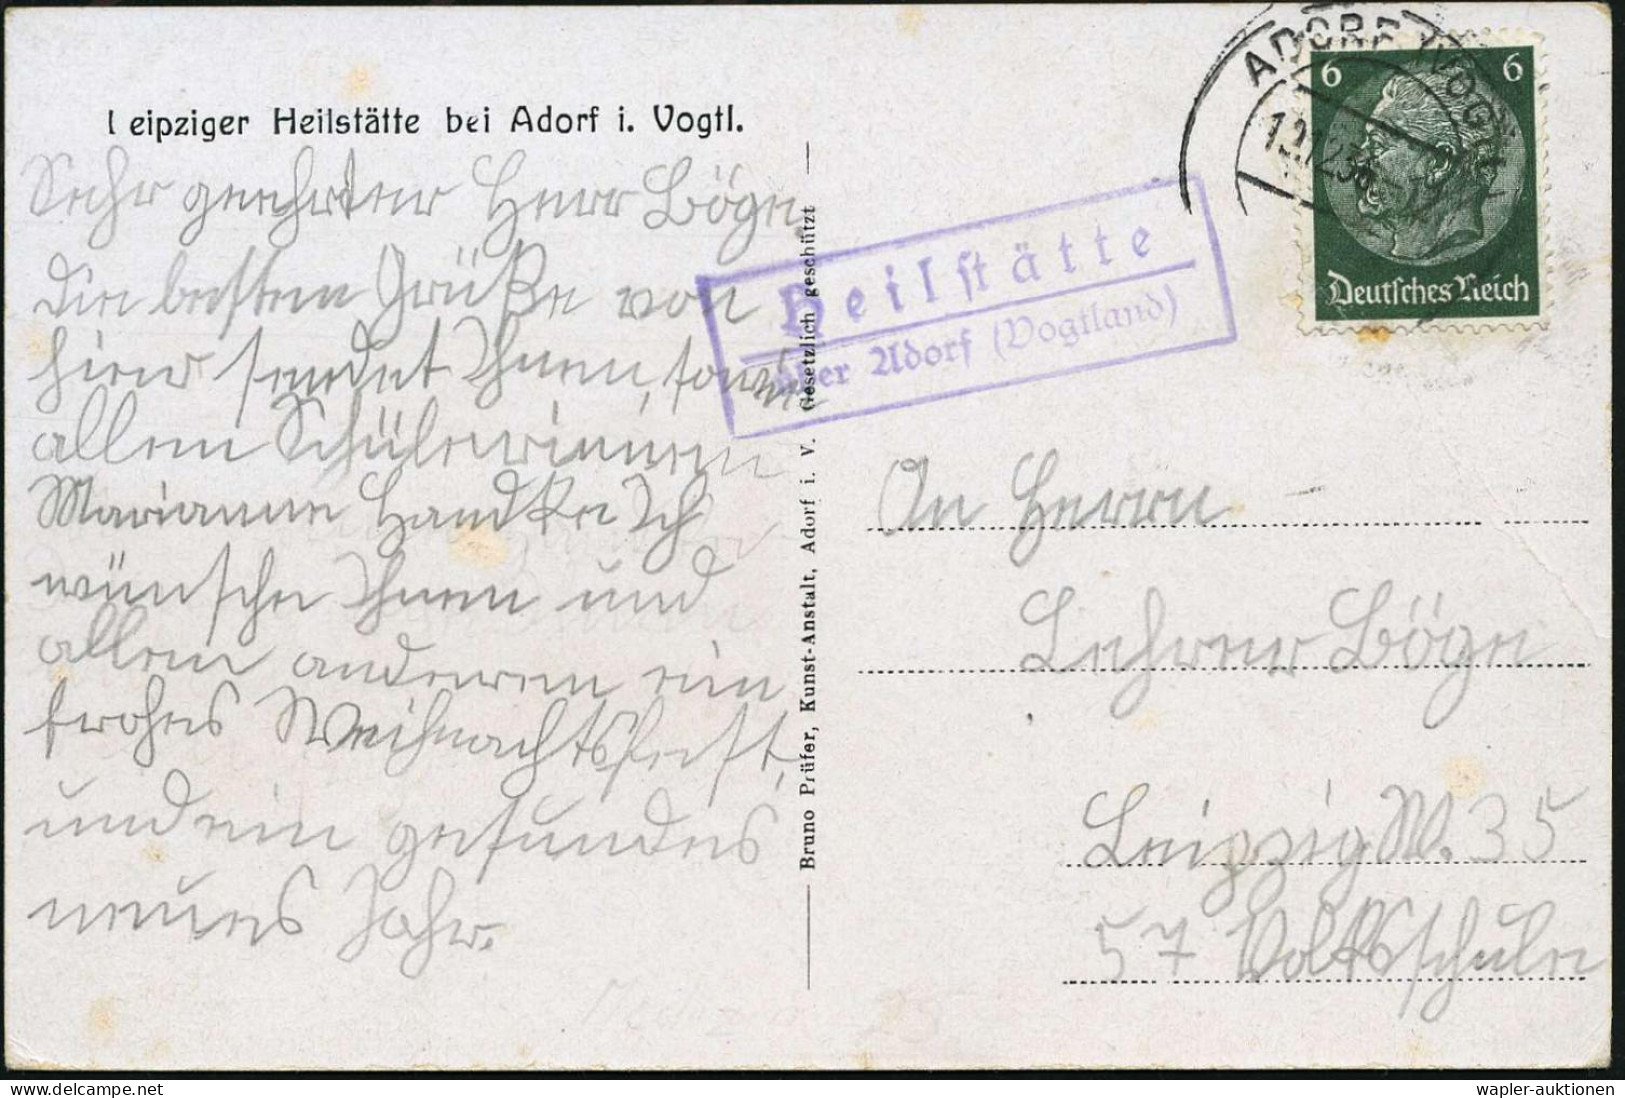 Leipziger Heilstätte bei Adorf i. Vogtl.
Sehr geehrter Herr Böge,
Die besten Grüße von
hier sendet Ihnen, sowie
allen Schülerinnen
Marianne Handke. Ich
wünsche Ihnen und
allen anderen ein
frohes Weihnachtsfest,
und ein gesundes
neues Jahr.
Bruno Prüfer, Kunst-Anstalt, Adorf i. V. Gesetzlich geschützt
Heilstätte
über Adorf (Vogtland)
ADORF (VOGTL)
6 6
Deutsches Reich
An Herrn
Lehrer Böge
Leipzig W. 35
57 Volksschule
wapler-auktionen